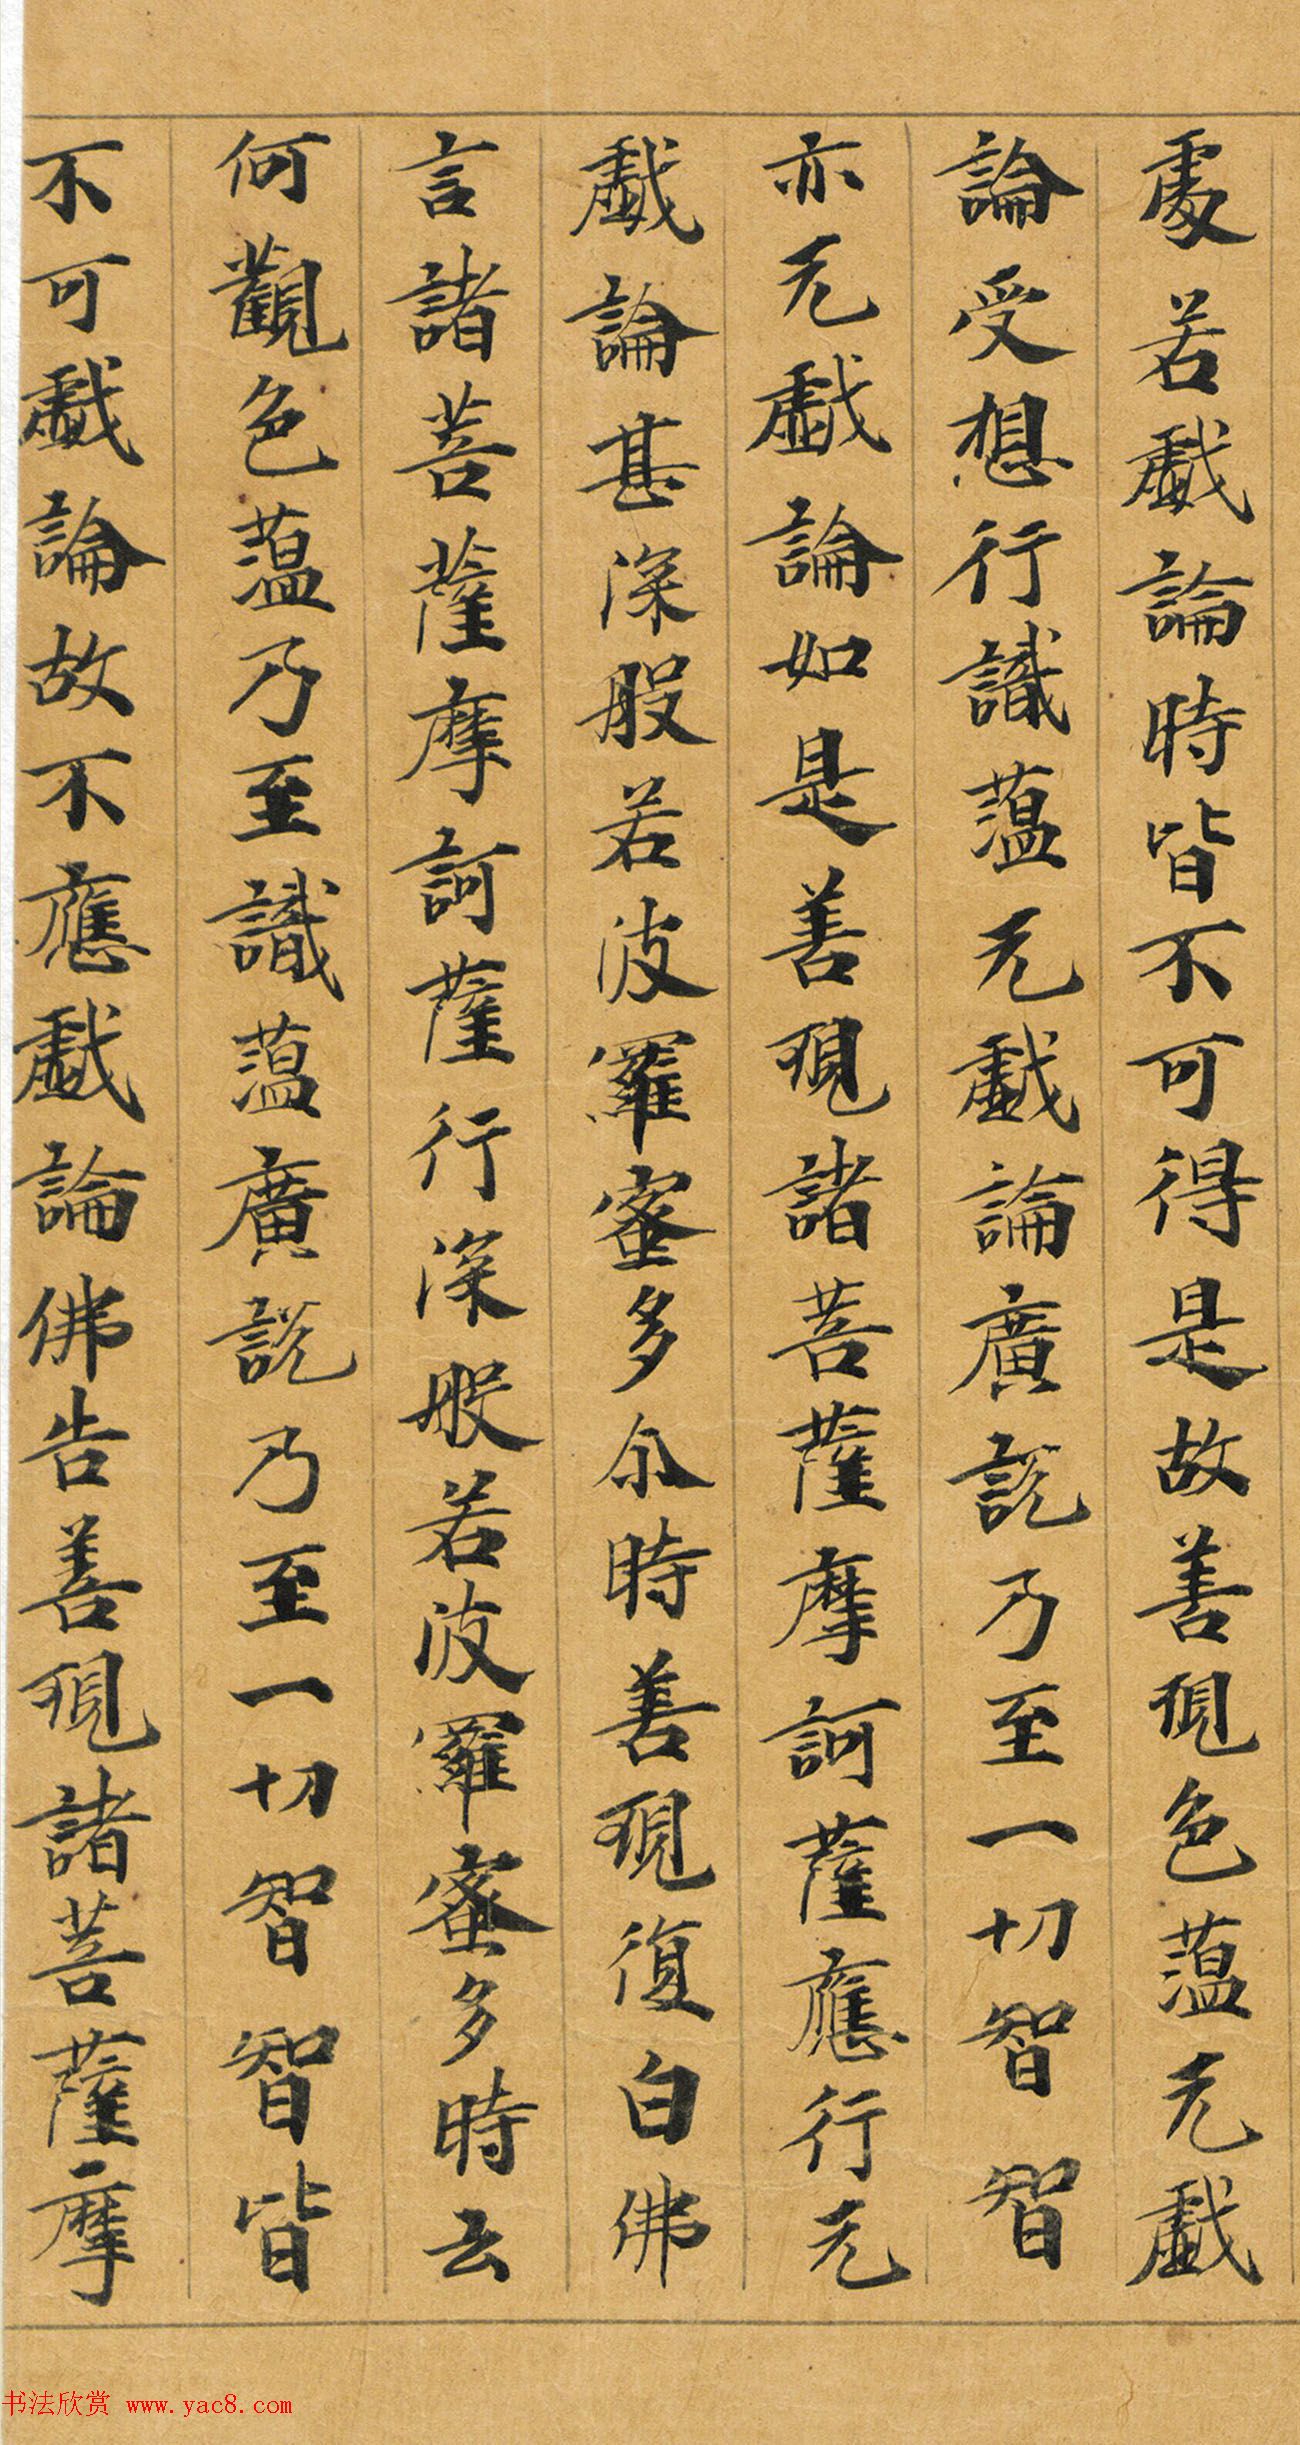 處若戲論時皆不可得是故善現色蘊无戲
論受想行識蘊无戲論廣說乃至一切智智
亦无戲論如是善現諸菩薩摩訶薩應行无
戲論甚深般若波羅蜜多尒時善現復白佛
言諸菩薩摩訶薩行深般若波羅蜜多時云
何觀色蘊乃至識蘊廣說乃至一切智智皆
不可戲論故不應戲論佛告善現諸菩薩摩
书法欣赏 www.yac8.com